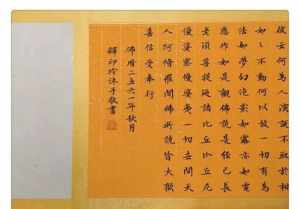 彼云何為人演說不取於相
如々不動何以故一切有為
法如夢幻泡影如露亦如電
應作如是觀佛說是經已長
老須菩提及諸比丘比丘尼
優婆塞優婆夷一切世間天
人阿修羅聞佛所說皆大歡
喜信受奉行
佛曆二五六一年秋月
釋印沐手敬書